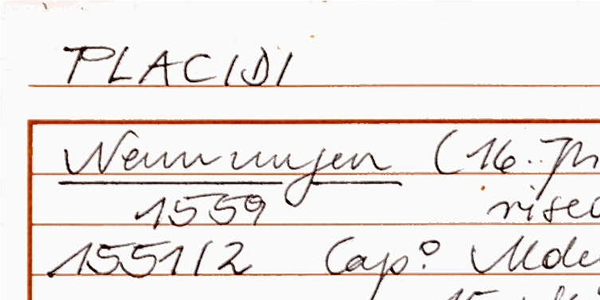 PLACIDI
Nennungen (16. Jh
1559 rise
1551/2 Cap.º Mode
15